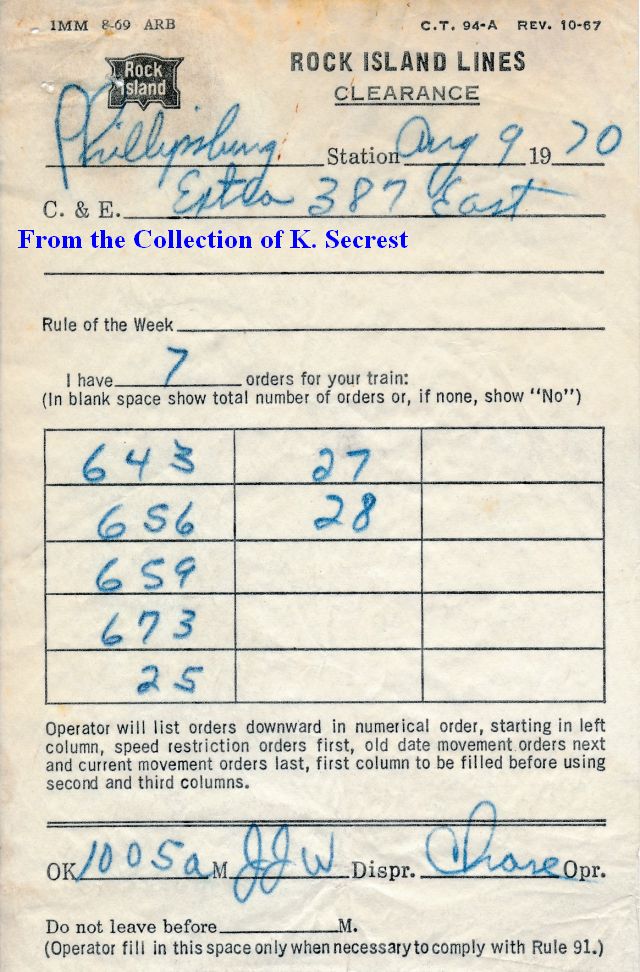 1MM 8-69 ARB C.T. 94-A REV. 10-67
Rock Island
ROCK ISLAND LINES
CLEARANCE
Phillipsburg Station Aug 9 1970
C. & E. Extra 387 East
From the Collection of K. Secrest
Rule of the Week
I have 7 orders for your train:
(In blank space show total number of orders or, if none, show "No")
643 27
656 28
659
673
25
Operator will list orders downward in numerical order, starting in left
column, speed restriction orders first, old date movement orders next
and current movement orders last, first column to be filled before using
second and third columns.
OK 1005a M JJW Dispr. Chase Opr.
Do not leave before M.
(Operator fill in this space only when necessary to comply with Rule 91.)